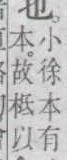 也。
小徐本有
本。故柢以